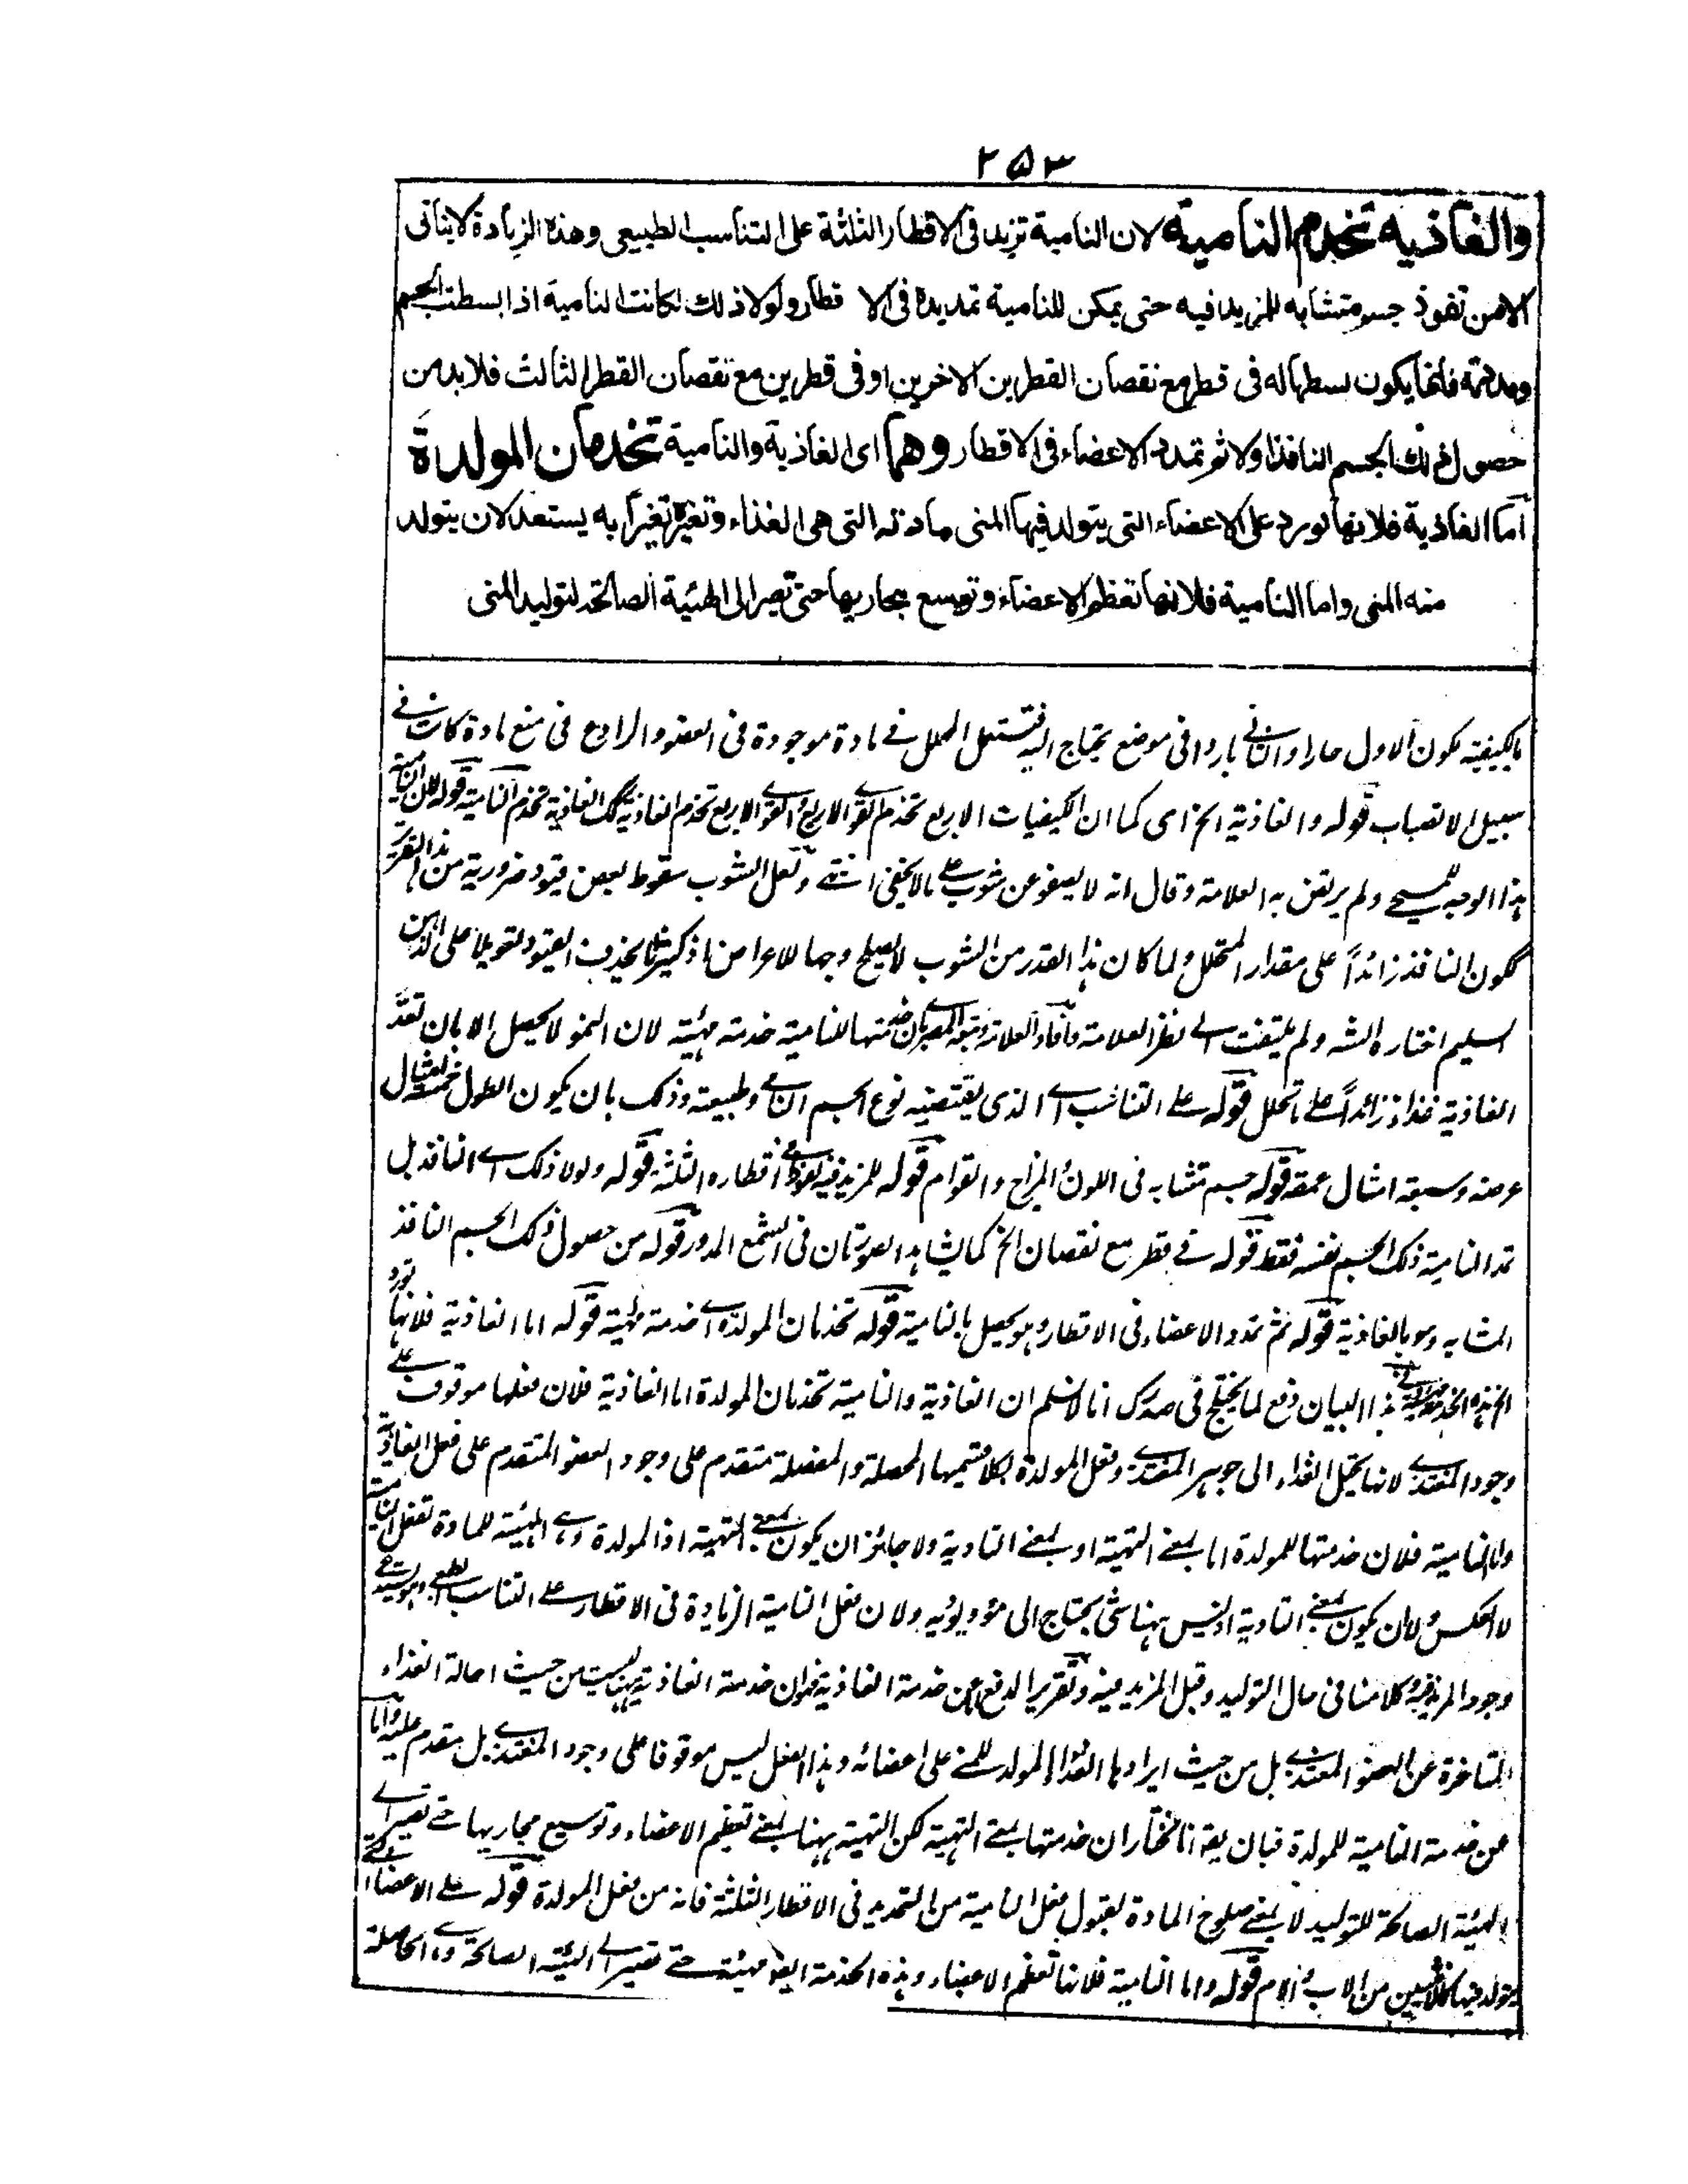 ۲۵۳
والغاذيه تخدم النامية لان النامية تزيد فى الاقطار الثلثة على التناسب الطبيعى وهذه الزيادة لايتاتى
الا من نفوذ جسم متشابه للمزيد فيه حتى يمكن للنامية تمديده فى الا قطار ولولا ذلك لكانت النامية اذا بسطت الجسم
ومددته فانما يكون بسطها له فى قطر مع نقصان القطرين الاخرين او فى قطرين مع نقصان القطر الثالث فلا بد من
حصول ذلك الجسم النافذ اولا ثم تمدد الاعضاء فى الاقطار وهما اى الغاذية والنامية تخدمان المولدة
اما الغاذية فلانها تورد على الاعضاء التى يتولد فيها المنى مادته التى هى الغذاء وتغيره تغيرا به يستعد لان يتولد
منه المنى واما النامية فلانها تعظم الاعضاء وتوسع مجاريها حتى تصير الى الهيئة الصالحة لتوليد المنى
بالكيفية لكون الاول حارا والثانى باردا فى موضع يحتاج اليه فتستعمل المحلل فى مادة موجودة فى العضو والرادع فى منع مادة كانت فى
سبيل الانصباب قوله والغاذية الخ اى كما ان الكيفيات الاربع تخدم القوى الاربع والقوى الاربع تخدم الغاذية كذلك الغاذية تخدم النامية قوله لان النامية
هذا الوجه للمسيحى ولم يرتض به العلامة وقال انه لا يصفو عن شوب على ما لا يخفى انتهى ولعل الشوب سقوط بعض قيود ضرورية من هذا التقرير
ككون النافذ زائداً على مقدار المتحلل ولما كان هذا القدر من الشوب لا يصلح وجها للاعراض اذ كثيرا ما يحذف القيود تعويلا على الذهن
السليم اختاره الشه ولم يلتفت الى نظر العلامة وافاد العلامة خدمتها للنامية خدمة مهيئة لان النمو لا يحصل الا بان تعد
الغاذية غذاء زائداً على ما تحلل قوله على التناسب اى الذى يقتضيه نوع الجسم النامى وطبيعته وذلك بان يكون الطول خمسة امثال
عرضه وسبعة امثال عمقه قوله جسم متشابه فى اللون والمزاج والقوام قوله للمزيد فيه اقطاره الثلثة قوله ولولا ذلك اى النافذ بل
تمد النامية ذلك الجسم نفسه فقط قوله فى قطر مع نقصان الخ كما يشاهد الصورتان فى الشمع المدور قوله من حصول ذلك الجسم النافذ
المشابه وهو بالغاذية قوله ثم تمدد الاعضاء فى الاقطار وهو يحصل بالنامية قوله تخدمان المولدة اى خدمة مهيئة قوله اما الغاذية فلانها تورد
هذا البيان دفع لما يختلج فى صدرك انا لا نسلم ان الغاذية والنامية تخدمان المولدة اما الغاذية فلان فعلها موقوف على
وجود المغتذى لانها تحيل الغذاء الى جوهر المغتذى وفعل المولدة بكلا قسميها المحصلة والمفصلة متقدم على وجود العضو المتقدم على فعل الغاذية
واما النامية فلان خدمتها للمولدة اما بمعنى التهيئة او بمعنى التادية ولا جائز ان يكون بمعنى التهيئة اذ المولدة هى المهيئة للمادة لفعل النامية
لا العكس ولا ان يكون بمعنى التادية اذ ليس ههنا شئ يحتاج الى مؤد يؤديه ولان فعل النامية الزيادة فى الاقطار على التناسب الطبعى وهو يستدعى
وجود المزيد فيه وكلامنا فى حال التوليد وقبل المزيد فيه وتقرير الدفع عن خدمة الغاذية فهو ان خدمة الغاذية ههنا ليست من حيث احالة الغذاء
المتاخرة عن العضو المغتذى بل من حيث ايرادها الغذاء المولد للمنى على اعضائه وهذا الفعل ليس موقوفا على وجود المغتذى بل مقدم عليه واما
عن خدمة النامية للمولدة فبان يقه انا نختار ان خدمتها بمعنى التهيئة لكن التهيئة ههنا بمعنى تعظيم الاعضاء وتوسيع مجاريها حتى تصير الى
الهيئة الصالحة للتوليد لا بمعنى صلوح المادة لقبول فعل النامية من التمديد فى الاقطار الثلثة فانه من فعل المولدة قوله على الاعضاء التى
يتولد فيها كالانثيين من الاب والام قوله واما النامية فلانها تعظم الاعضاء وهذه الخدمة ايضا مهيئة حتى تصير الى الهيئة الصالحة وهى الحاصلة